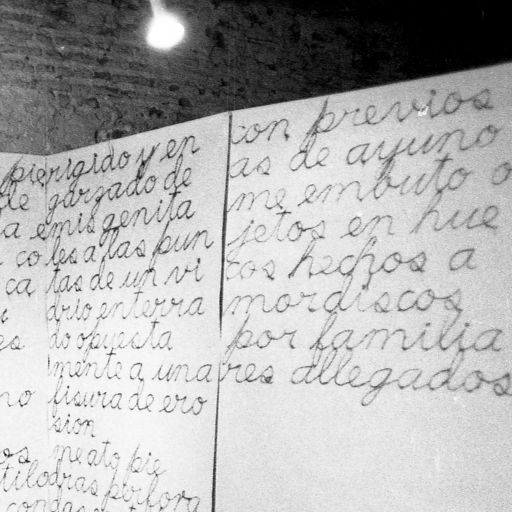 pie
le
a
co
ca
es
no
os
tilo
con
rigido y en
garzado de
emis genita
les a las pun
tas de un vi
drio enterra
do opuesta
mente a una
fisura de ero
sion
me ato pie
dras perfora
con previos
as de ayuno
me embuto o
jetos en hue
cos hechos a
mordiscos
por familia
res allegados